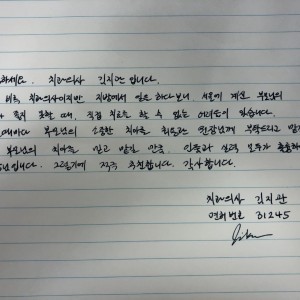 하세요. 치과의사 김지관 입니다.
비록 치과의사이지만 지방에서 일을 하다보니 서울에 계신 부모님의
좋지 못할 때, 직접 치료를 할 수 없는 어려움이 있습니다.
때마다 부모님의 소중한 치아를 최요관 원장님께 부탁드리고 맡
부모님의 치아를 믿고 맡길 만큼, 인품과 실력 모두가 훌륭하
입니다. 그렇기에 적극 추천합니다. 감사합니다.
치과의사 김지관
면허번호 31245